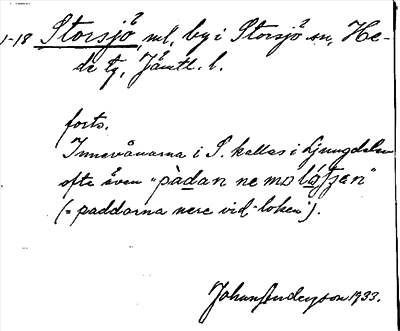 1-18 Storsjö, ml, by i Storsjö sn, He-
de tg, Jämtl. l.
forts.
Innevånarna i S. kallas i Ljungdalen
ofta även "pàdan ne mo lótjen"
(= paddorna nere vid "loken").
Johan Anderson 1933.